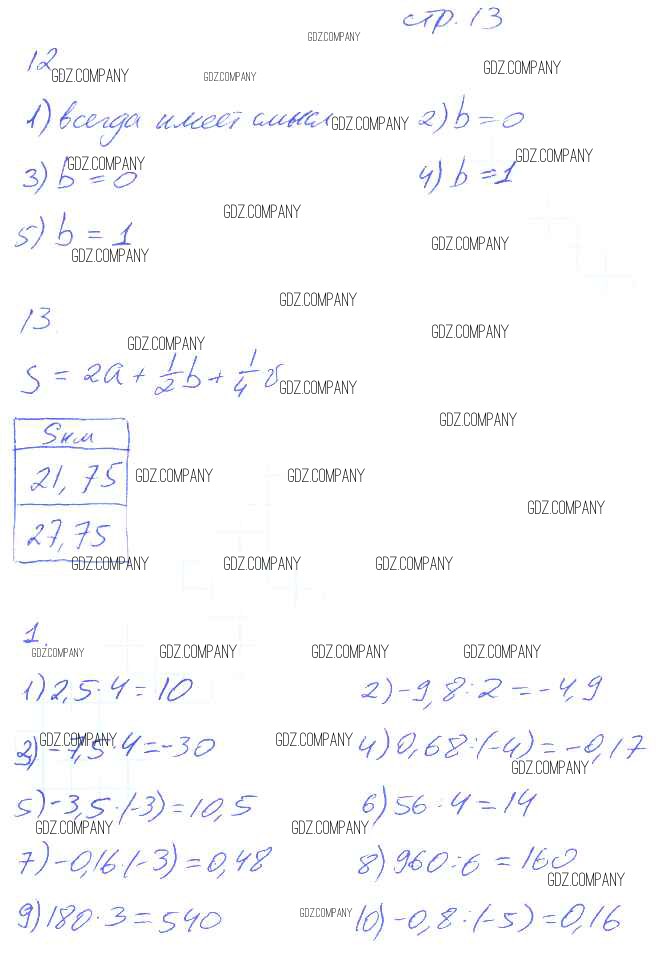 стр. 13
GDZ.COMPANY
12
GDZ.COMPANY GDZ.COMPANY GDZ.COMPANY
1) всегда имеет смысл GDZ.COMPANY 2) b = 0
GDZ.COMPANY GDZ.COMPANY
3) b = 0 4) b = 1
GDZ.COMPANY
5) b = 1 GDZ.COMPANY
GDZ.COMPANY
GDZ.COMPANY
13.
GDZ.COMPANY
GDZ.COMPANY
S = 2a + 1/2 b + 1/4 в
GDZ.COMPANY
GDZ.COMPANY
Sкм
21,75 GDZ.COMPANY GDZ.COMPANY
GDZ.COMPANY
27,75
GDZ.COMPANY GDZ.COMPANY GDZ.COMPANY
1.
GDZ.COMPANY GDZ.COMPANY GDZ.COMPANY GDZ.COMPANY
1) 2,5 · 4 = 10 2) -9,8 : 2 = -4,9
GDZ.COMPANY GDZ.COMPANY
3) -7,5 · 4 = -30 4) 0,68 : (-4) = -0,17
GDZ.COMPANY
5) -3,5 · (-3) = 10,5 6) 56 : 4 = 14
GDZ.COMPANY GDZ.COMPANY
7) -0,16 · (-3) = 0,48 8) 960 : 6 = 160
GDZ.COMPANY
9) 180 · 3 = 540 GDZ.COMPANY 10) -0,8 : (-5) = 0,16